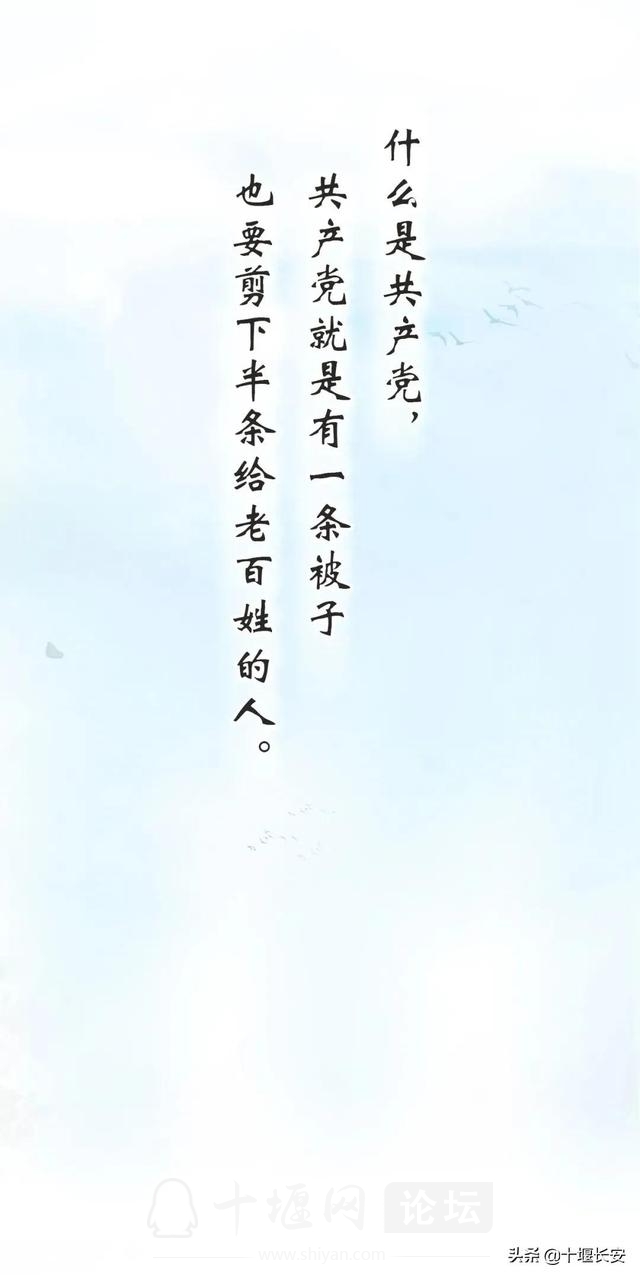 什么是共产党，
共产党就是有一条被子
也要剪下半条给老百姓的人。
十堰网 论坛
www.shiyan.com
头条 @十堰长安